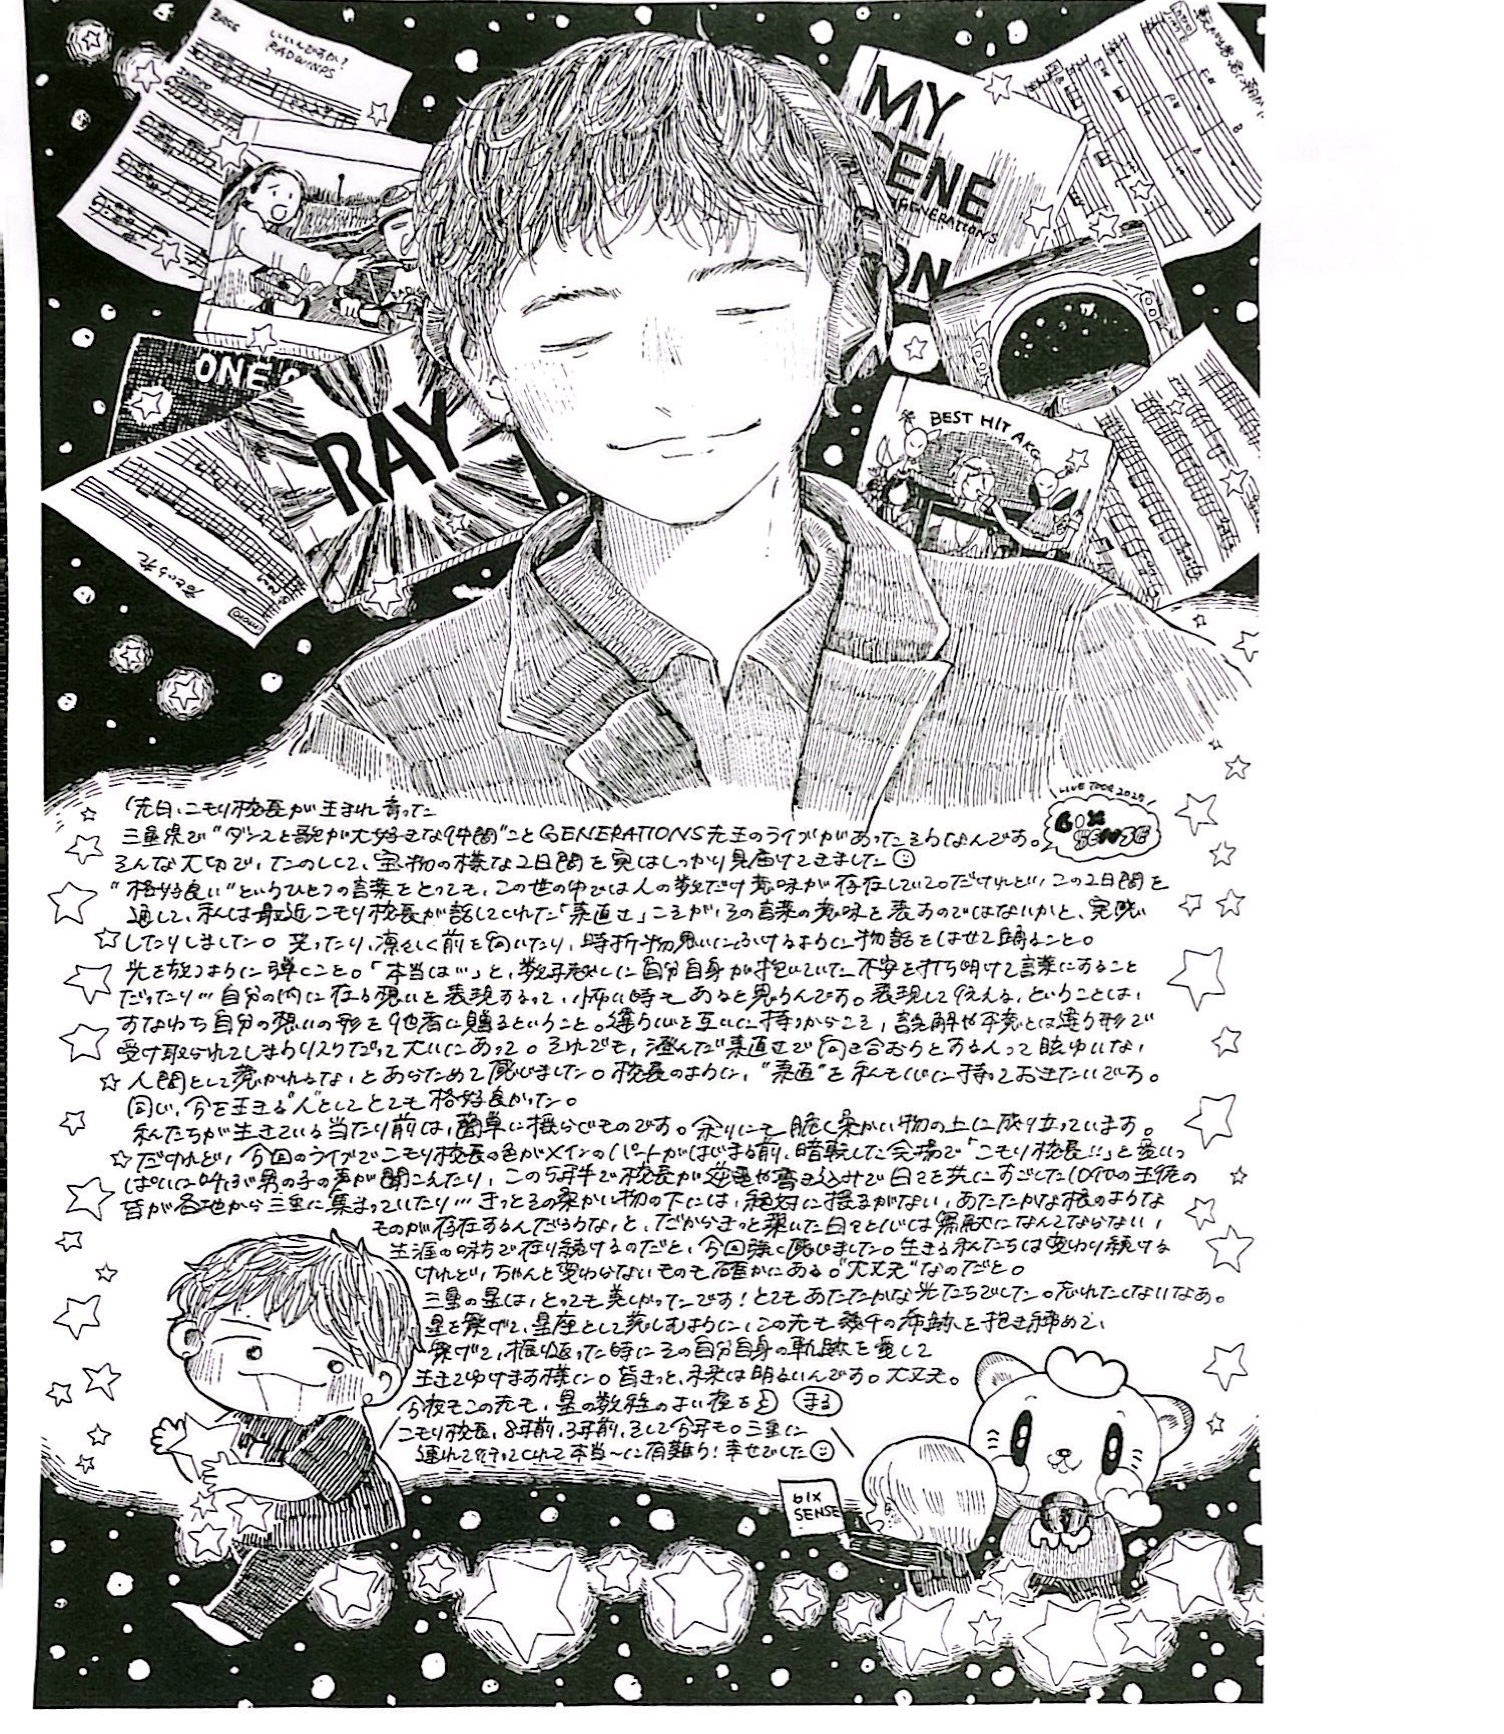 BASE
いいんですか?
RADWIMPS
MY
GENE
GENERATIONS
ON
ONE
RAY
BEST HIT AKG
LIVE TOUR 2025
6IX SENSE
先日、こもり校長が生まれ育った
三重県で“ダンスと歌が大好きな7人間”ことGENERATIONS先生のライブがあったそうなんです。
そんな大切で、たのしくて、宝物の様な2日間を実はしっかり見届けてきました
“格好良い”というひとつの言葉をとっても、この世の中では人の数だけ意味が存在していて。だけれど、この2日間を
通して、私は最近こもり校長が話してくれた「素直さ」こそが、その言葉の意味を表すのではないかと、実感
したりしました。笑ったり、凛々しく前を向いたり、時折物思いにふけるように物語をはせて踊ること。
光を放つように弾くこと。「本当は…」と、数年越しに自分自身が抱いていた不安を打ち明けて言葉にすること
だったり…自分の内に在る想いを表現するって、怖い時もあると思うんです。表現して伝える、ということは、
すなわち自分の想いの形を他者に贈るということ。違う心を互いに持つからこそ、誤解や不意とは違う形で
受け取られてしまうリスクだって大いにあって。それでも、澄んだ素直さで向き合おうとする人って眩ゆいな、
人間として惹かれるな、とあらためて感じました。校長のように、“素直”を私も心に持っておきたいです。
同じ、今を生きる“人”としてとても格好良かった。
私たちが生きている当たり前は、簡単に揺らぐものです。余りにも脆く柔かい物の上に成り立っています。
だけれど、今回のライブでこもり校長の色がメインのパートがはじまる前、暗転した会場で「こもり校長!!」と愛いっ
ぱいに叫ぶ男の子の声が聞こえたり、この5年半で校長が逆電や書き込みで日々を共にすごした10代の生徒の
皆が各地から三重に集まっていたり…きっとその柔かい物の下には、絶対に揺るがない、あたたかな根のような
ものが存在するんだろうな、と、だからきっと築いた日々と心は無駄になんてならない、
生涯の味方で在り続けるのだと、今回強く感じました。生きる私たちは変わり続ける
けれど、ちゃんと変わらないものも確かにある。“大丈夫”なのだと。
三重の星は、とっても美しかったです!とてもあたたかな光たちでした。忘れたくないなあ。
星を繋げて、星座として慈しむように、この先も幾千の奇跡を抱き締めて、
繋げて、振り返った時にその自分自身の軌跡を愛して
生きてゆけます様に。皆きっと、未来は明るいんです。大丈夫。
今夜もこの先も、星の数程のよい夜を まる
こもり校長、8年前、3年前、そして今年も。三重に
連れて行ってくれて本当〜に有難う!幸せでした
6IX
SENSE